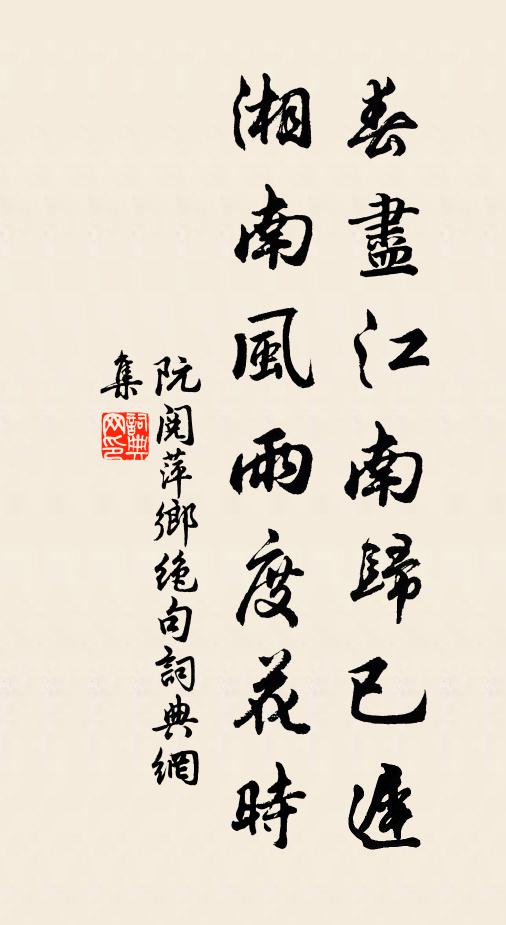 春盡江南歸已遲
湘南風雨度花時
阮閱萍鄉絶句詞典網
集
詞典网印